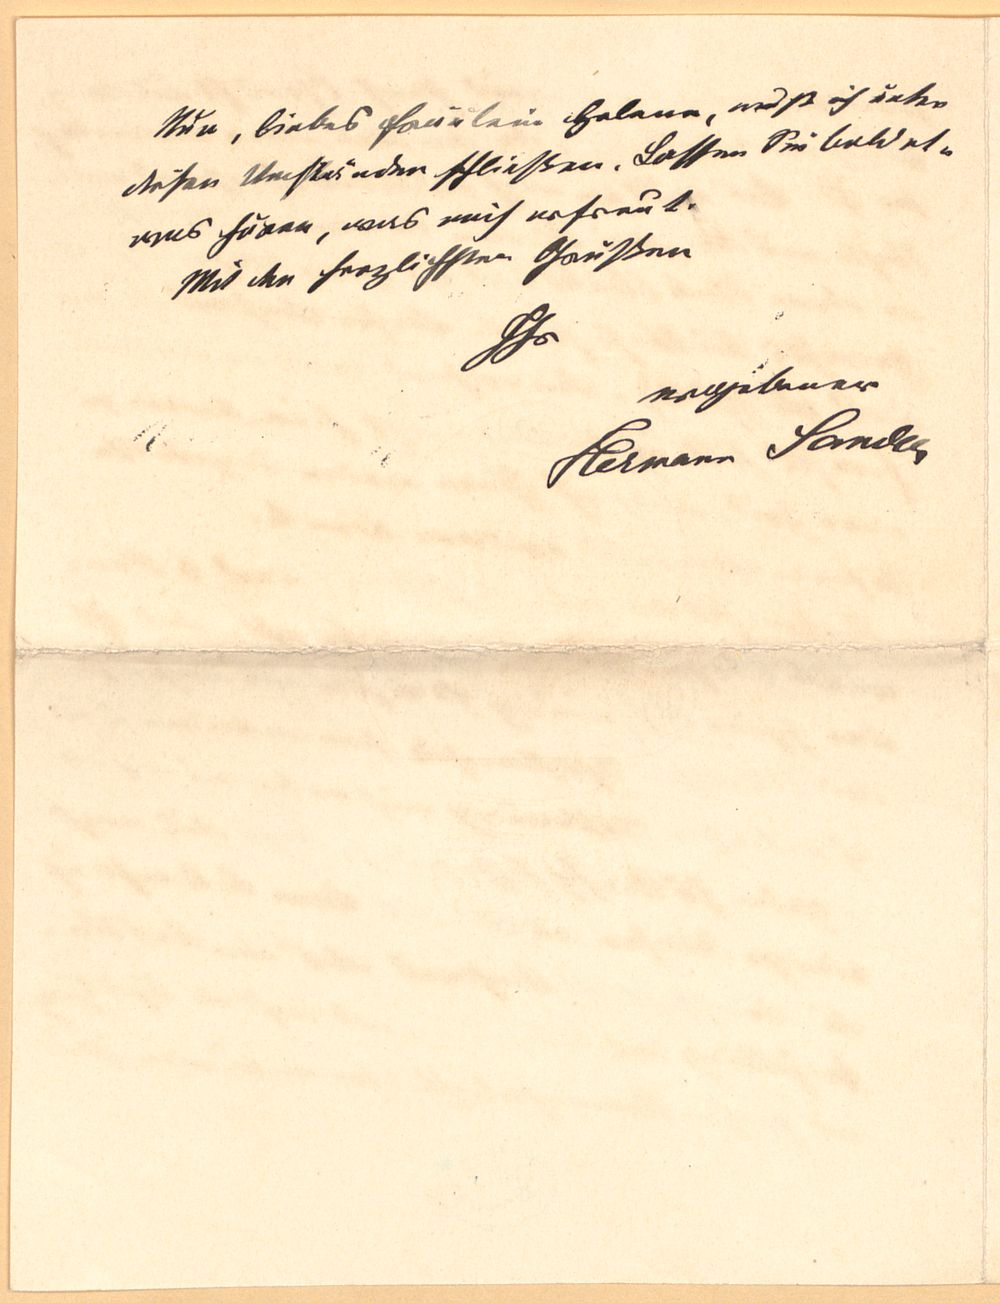 Nun, liebes Fräulein Helene, muß ich unter
diesen Umständen schließen. Lassen Sie bald et-
was hören, was mich erfreut.
Mit den herzlichsten Grüßen
Ihr
ergebener
Hermann Sander